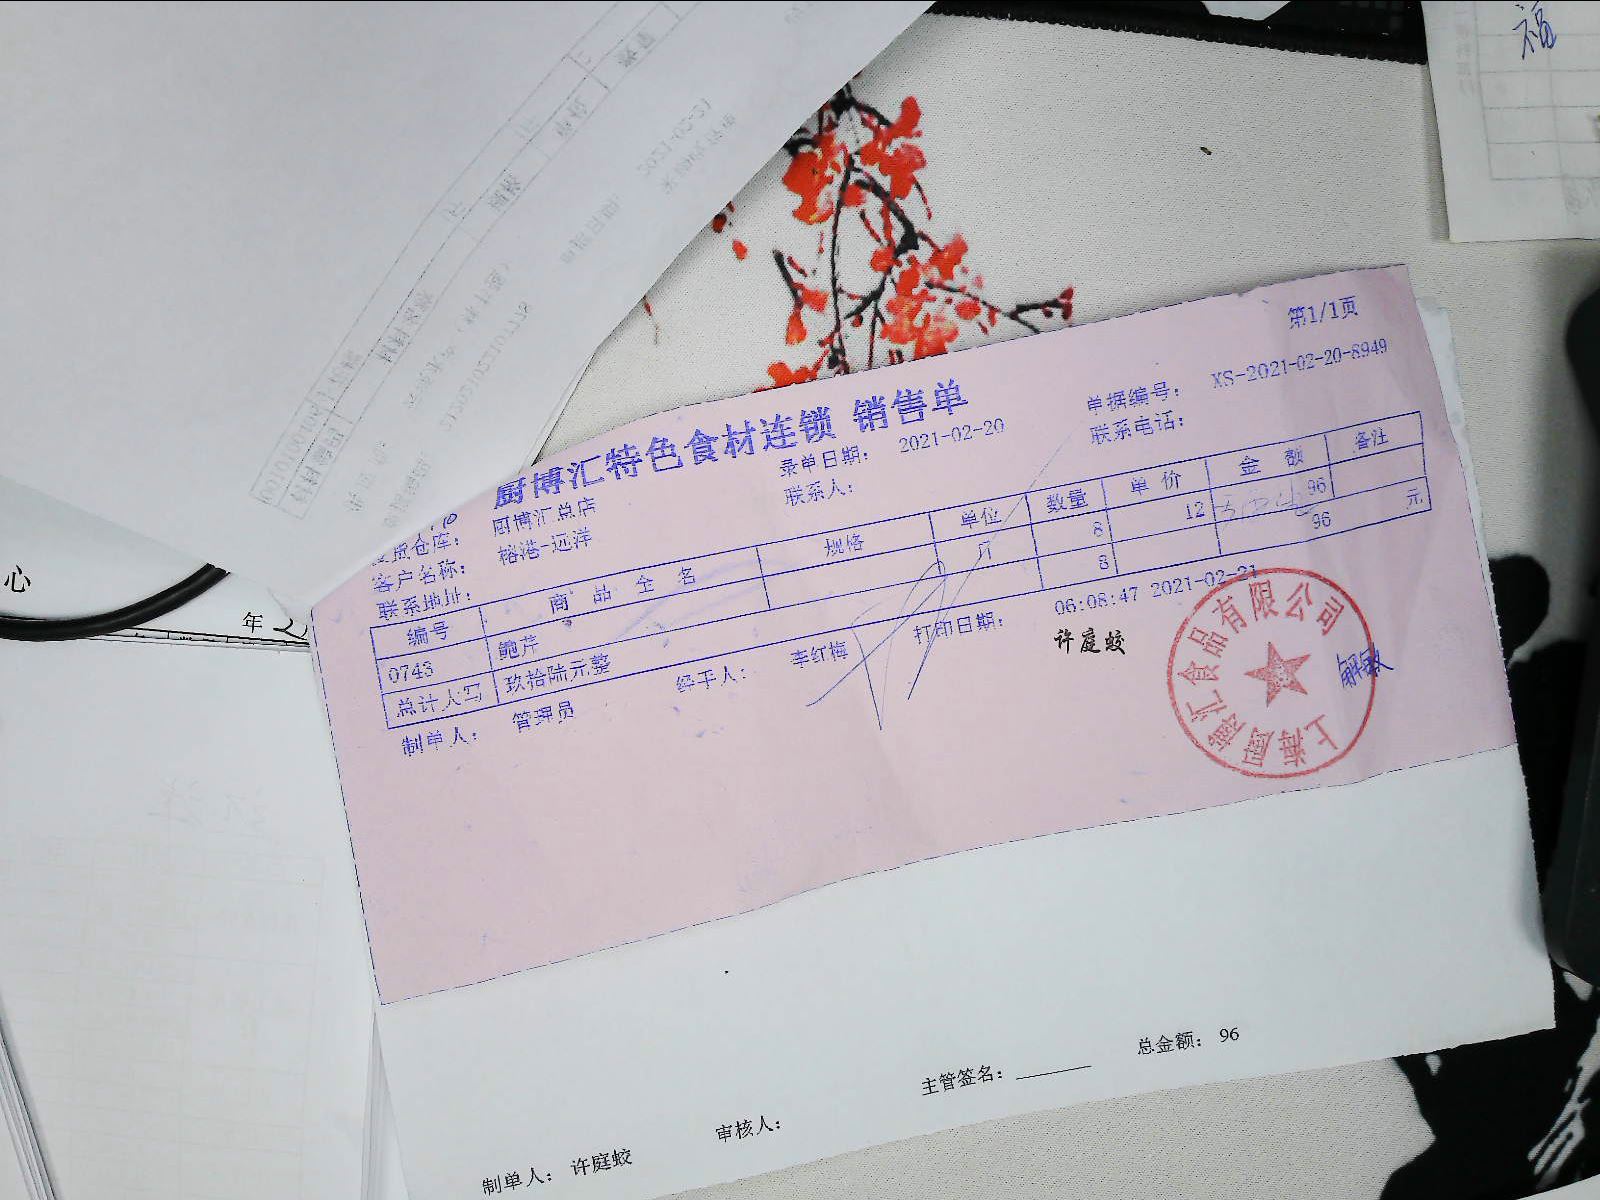 福
第1/1页
厨博汇特色食材连锁 销售单
录单日期： 2021-02-20
单据编号： XS-2021-02-20-8949
厨博汇总店
联系人：
联系电话：
货仓库：
客户名称： 榕港-远洋
联系地址：
编号 商品全名 规格 单位 数量 单价 金额 备注
0743 鲍芹 斤 8 12 96
总计大写 玖拾陆元整 8 96 元
制单人： 管理员 经手人： 李红梅 打印日期： 06:08:47 2021-02-21
许庭蛟
上海厨博汇食品有限公司
心
年
总金额： 96
主管签名：
审核人：
制单人： 许庭蛟